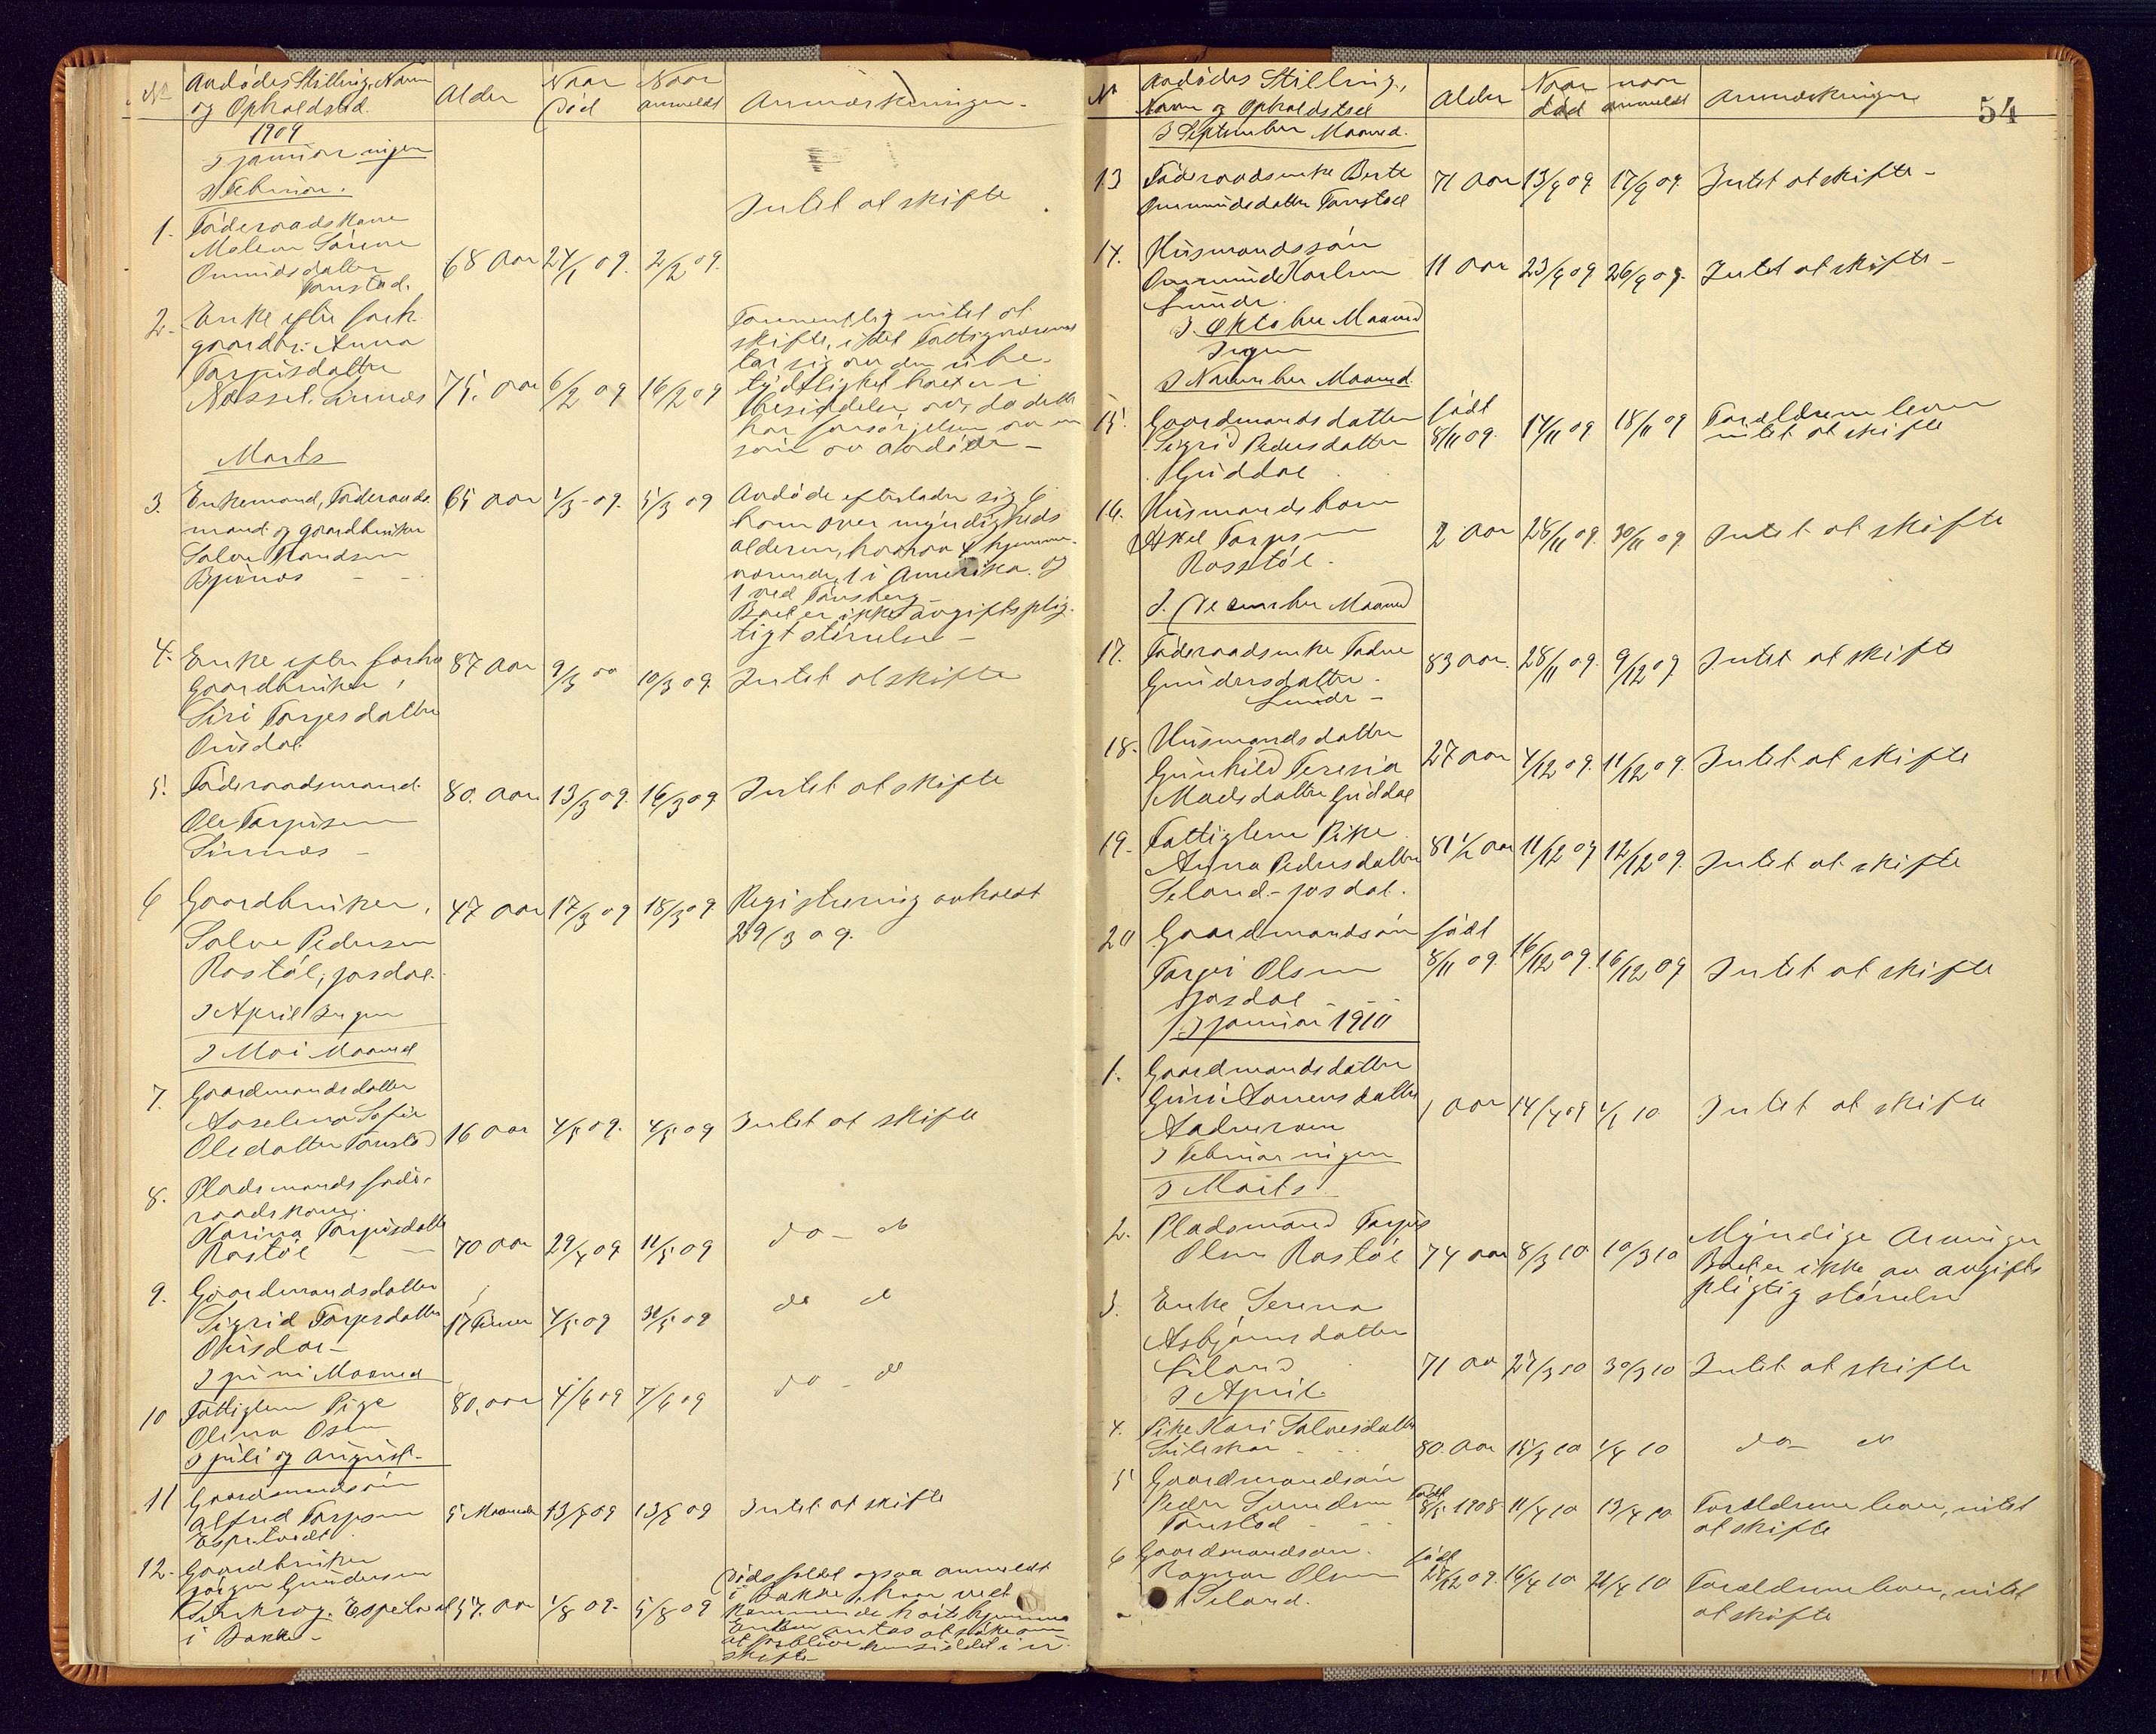 No Avdødes Stilling, Navn
og Opholdsted.
Alder
Naar
Død
Naar
anmeldt
Anmærkninger.
1909
I januar ingen
I Februar.
1. Føderaadskone
Malene Sørine
Omundsdatter
Tonstad.
68 Aar 24/1 09. 2/2 09.
Intet at skifte
2. Enke efter forh.
gaardbr: Anna
Torjusdatter
Nesset, Sirnæs 75. aar 6/2 09 16/2 09
Formentlig intet at
skifte, idet Fattigvæsenet
tar sig av den ube-
tydelighet boet er i
besiddelse av, da dette
har forsørjelsen av en
søn av avdøde -
Marts
3. Enkemand, Føderaads
mand og gaardbruker
Salve Trondsen
Bjunes
65 aar 1/3-09. 5/3 09
Avdøde efterlader sig 6
barn over myndigheds
alderen, hvorav 4 hjemme-
værende, 1 i Amerika og
1 ved Tønsberg -
Boet er ikke avgiftsplig-
tigt størrelse -
4. Enke efter forhv
Gaardbruker,
Siri Torjesdatter
Ousdal
87 aar 9/3 09 10/3 09 Intet at skifte
5. Føderaadsmand
Ole Torjusen
Sirnæs -
80. aar. 13/3 09. 16/3 09 Intet at skifte
6 Gaardbruker,
Salve Pedersen
Rostøl, josdal.
47 aar 17/3 09 18/3 09 Registrering avholdt
29/3 09.
I April Ingen
I Mai Maaned
7. Gaardmandsdatter
Aaselena Sofie
Olsdatter Tonstad 16 aar 4/5 09. 4/5 09 Intet at skifte
8. Pladsmands føde-
raadskone.
Karina Torjusdatter
Rostøl - - 70 aar 29/4 09 11/5 09 do - do
9. Gaardmandsdatter
Sigrid Torjesdatter
Ousdal - 17 Timer 4/5 09 31/5 09 do do
I juni Maaned
10 Fattiglem Pige
Olina Osen
80. aar 4/6 09 7/6 09 do - do
I juli og August.
11 Gaardmandsøn
Alfred Torjesen
Espetvedt
5 Maaneder 13/7 09 13/7 09 Intet at skifte
12. Gaardbruker
Jørgen Gundersen
i Bakke - 57. aar 1/8 09. 5/8 09
Dødsfaldet ogsaa anmeldt
i Bakke, hvor ved
kommende hørte hjemme
Enken antas at søke om
skifte -
54
No Avdødes Stilling,
Navn og Opholdsted
Alder
Naar
død
naar
anmeldt
Anmærkninger
I September Maaned.
13 Føderaadsenke Berte
Ommundsdatter Tonstad
71 aar 13/9 09 17/9 09. Intet at skifte -
14. Husmandssøn
Ommund Karlsen
Lunde.
11 aar 23/9 09 26/9 09. Intet at skifte -
I. Oktober Maaned
Ingen
I November Maaned.
15. Gaardmandsdatter
Sigrid Pedersdatter
Guddal
født
8/11 09. 14/11 09 18/11 09 Forældrene lever
intet at skifte
16. Husmandsbarn
Aksel Torjusen
Rosstøl.
2 aar 28/11 09. 30/11 09 Intet at skifte
I. December Maaned
17. Føderaadsenke Tadne
Gundersdatter -
Lunde -
83 aar. 28/11 09. 9/12 09 Intet at skifte
18. Husmandsdatter
Gunhild Teresia
Madsdatter Guddal
27 aar 4/12 09. 11/12 09. Intet at skifte
19. Fattiglem Pike
Anna Pedersdatter
Seland - josdal.
81 1/2 aar 11/12 09 12/12 09. Intet at skifte
20 Gaardmandsøn
Torjei Olsen
Josdal - - -
født
8/11 09. 16/12 09. 16/12 09 Intet at skifte
I januar 1910
1. Gaardmandsdatter
Guri Aanensdatter
1 aar 14/4 09 1/1 10 Intet at skifte
I Februar ingen
I Marts.
2. Pladsmand Torjus
Olsen Rostøl 74 aar 8/3 10 10/3 10
Myndige Arvinger
Boet er ikke av avgifts
pligtig størrelse
3. Enke Serena
Asbjørnsdatter
Siland
71 aa 27/3 10 30/3 10 Intet at skifte
I April.
4. Pike Kari Salvesdatter
80. aar 15/3 10 1/4 10 do - do
5 Gaardmandsøn
Peder Svendsen
Tonstad - - -
født
8/5 1908 11/4 10 13/4 10 Forældrene lever, intet
at skifte
6 Gaardmandsøn.
Ragnar Olsen
Seland.
født
27/12 09. 16/4 10 21/4 10 Forældrene lever, intet
at skifte